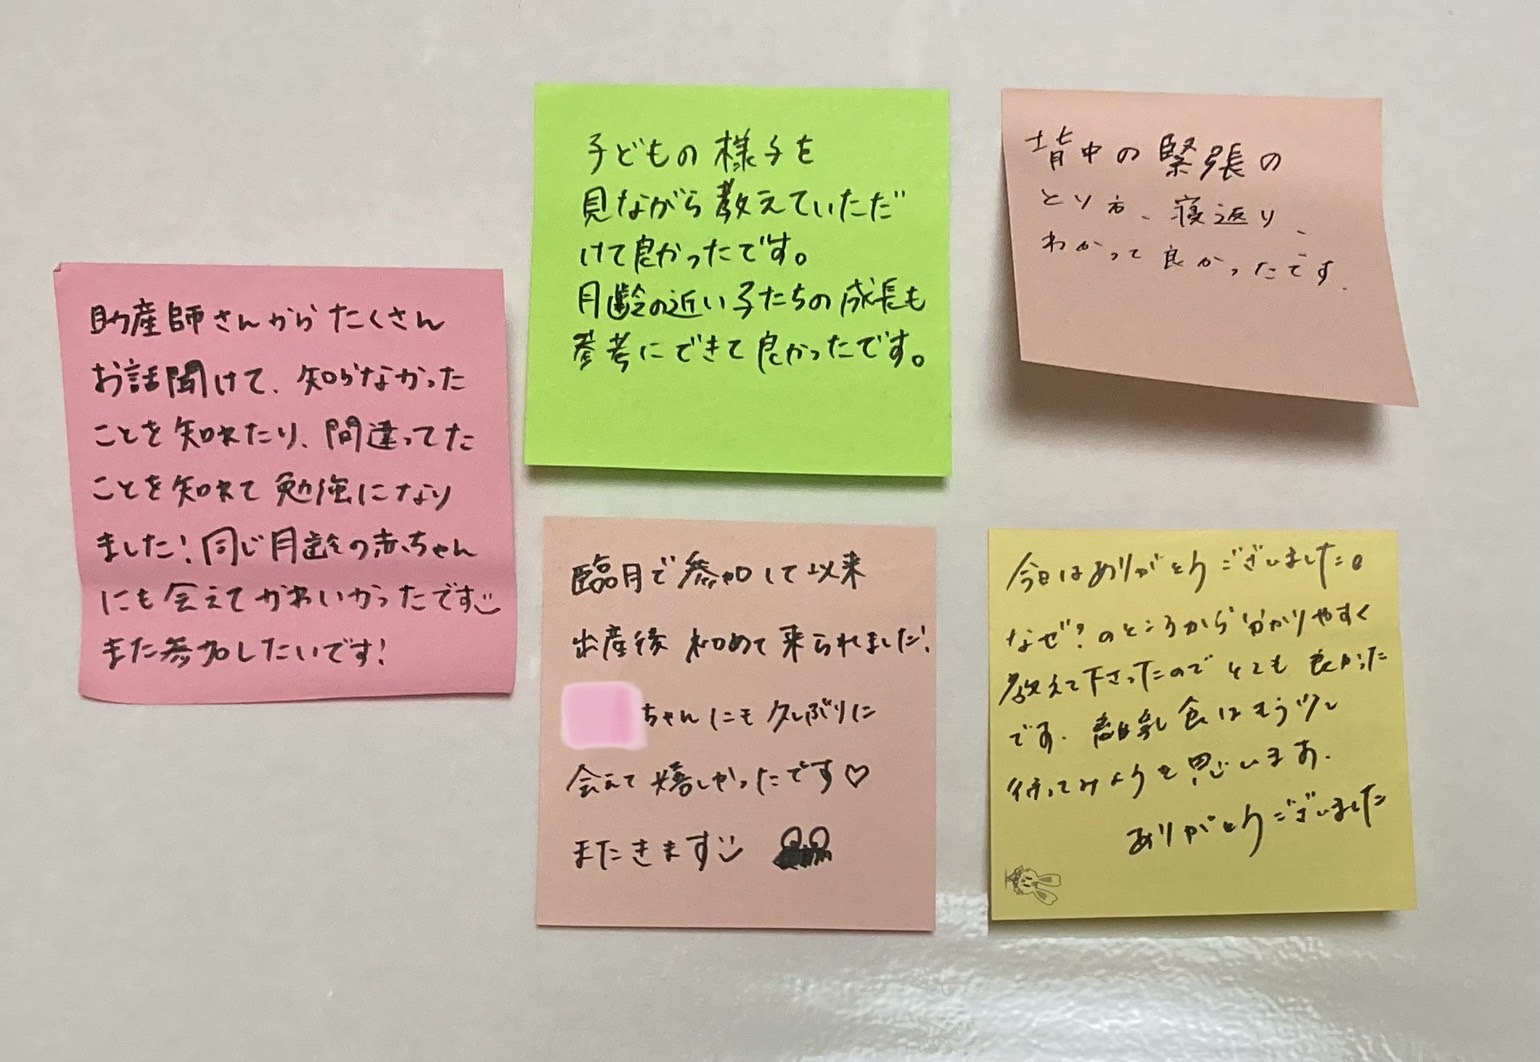 助産師さんからたくさん
お話聞けて、知らなかった
ことを知れたり、間違ってた
ことを知れて勉強になり
ました!同じ月齢の赤ちゃん
にも会えてかわいかったです
また参加したいです!
子どもの様子を
見ながら教えていただ
けて良かったです。
月齢の近い子たちの成長も
参考にできて良かったです。
背中の緊張の
とり方、寝返り、
わかって良かったです.
臨月で参加して以来
出産後初めて来られました!
ちゃんにも久しぶりに
会えて嬉しかったです♡
またきます
今日はありがとうございました。
なぜ?のところから分かりやすく
教えて下さったのでとても良かった
です.離乳食はもう少し
待ってみようと思います.
ありがとうございました